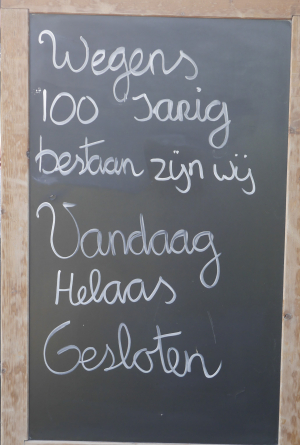 Wegens
100 Jarig
bestaan zijn wij
Vandaag
Helaas
Gesloten